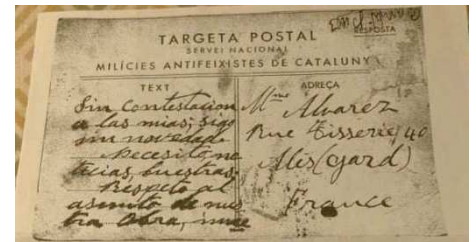 TARGETA POSTAL
RESPOSTA
SERVEI NACIONAL
MILÍCIES ANTIFEIXISTES DE CATALUNY
TEXT
Sin Contestacion
a las mias; sigo
sin novedad.
Necesito no
ticias, buestras,
Respeto al
asunto de nues
tra obra,
ADREÇA
Mme Alvarez
Rue Tisserie 40
Alès (Gard)
France